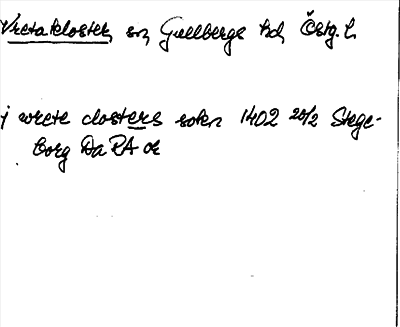 Vreta kloster, sn, Gullbergs hd, Östg. l.
j wrete closters sokn 1402 20/2 Stege-
borg Da RA or